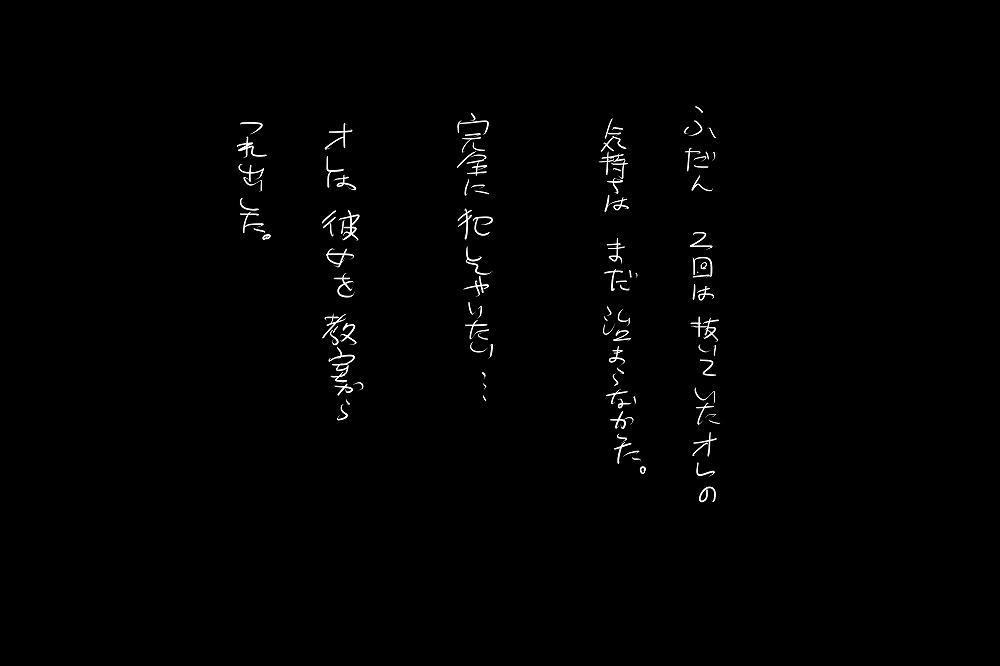 ふだん 2回は抜いていたオレの
気持ちは まだ治まらなかった。
完全に犯しちゃいたい…
オレは彼女を教室から
つれ出した。